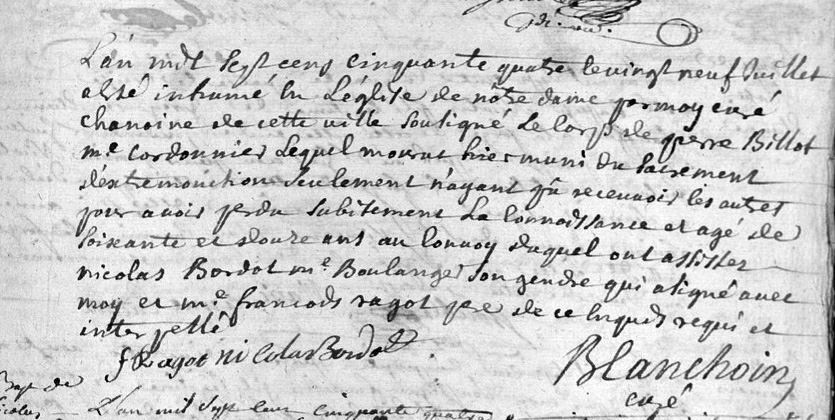 L'an mil sept cens cinquante quatre le vingt neuf Juillet
a esté inhumé en L'église de nôtre dame par moy curé
chanoine de cette ville soussigné le corps de pierre Billot
m.e Cordonnier Lequel mourut hier muni du sacrement
d'extremonction seulement n'ayant pû recevoir les autres
pour avoir perdu subitement la connoissance et agé de
soixante et douze ans au convoy duquel ont assister
nicolas Bordot m.e Boulanger son gendre qui a signé avec
moy et m.e francois ragot pre de ce enquis requi et
interpellé
f Ragot nicolas Bordot
Blanchoin
curé
Bap. de
nicolas
L'an mil sept cens cinquante quatre